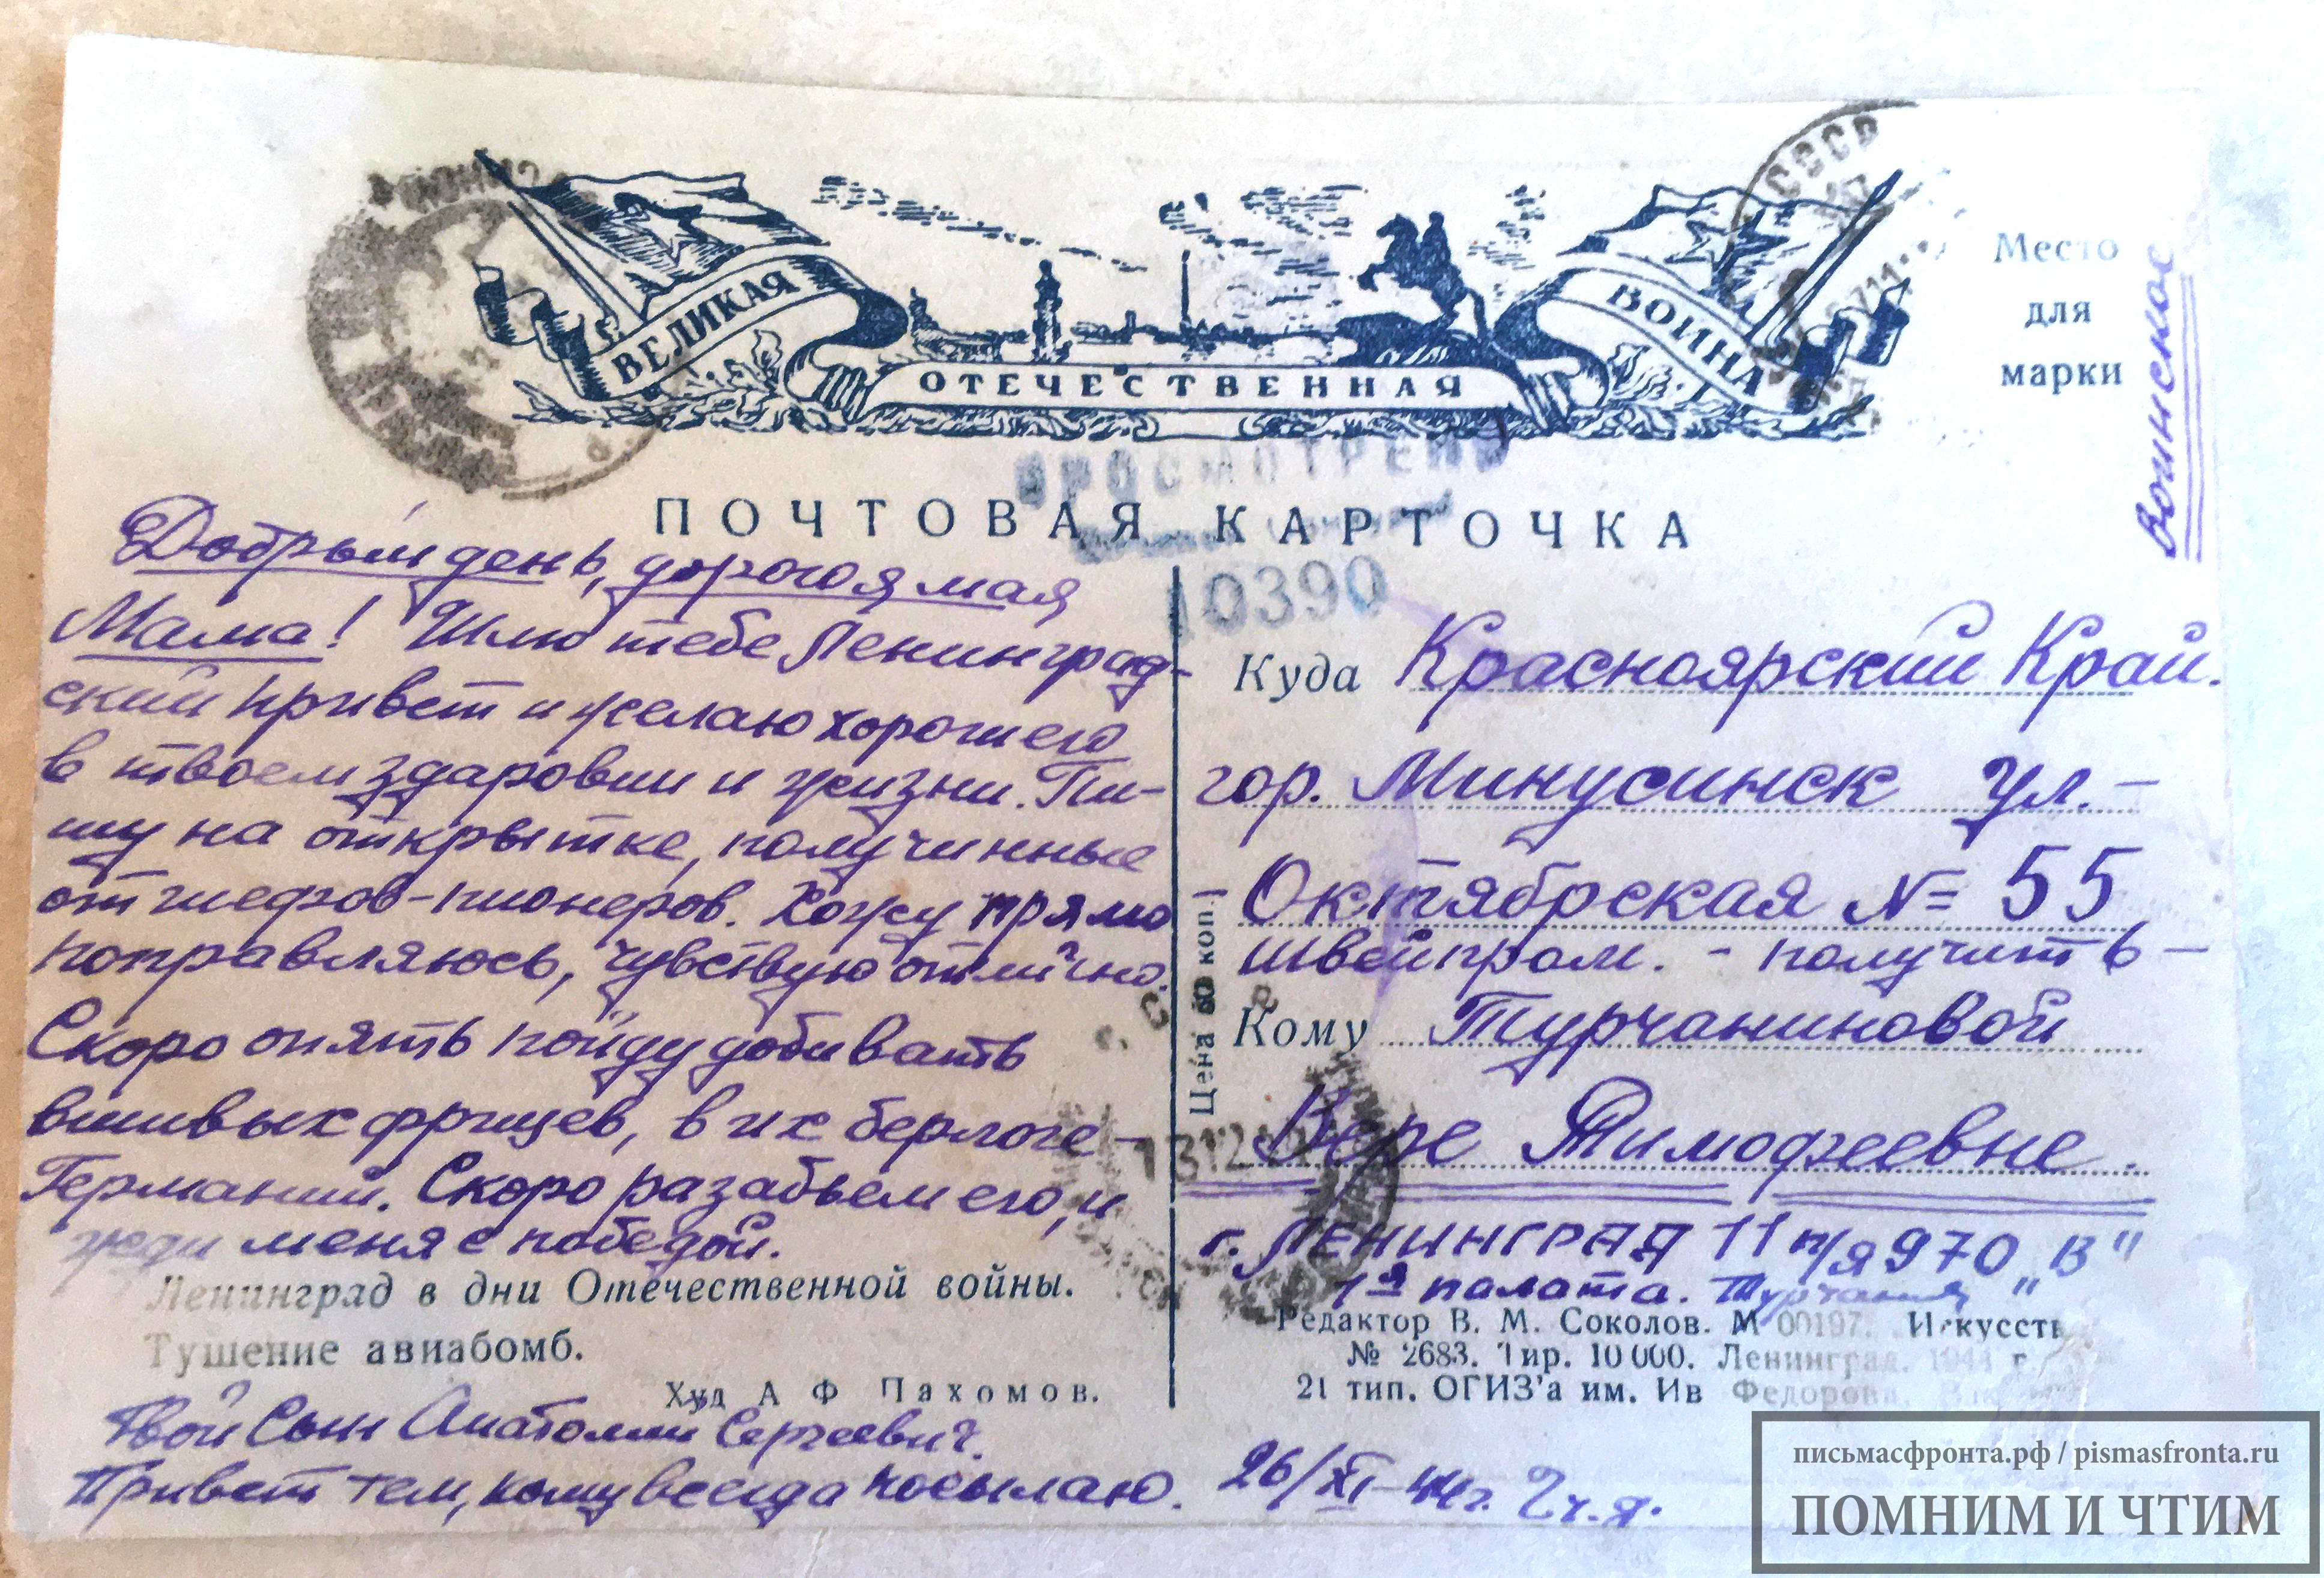 ВЕЛИКАЯ
ОТЕЧЕСТВЕННАЯ
ВОЙНА
СССР
Место
для
марки
Воинское
ПРОСМОТРЕНО
ПОЧТОВАЯ КАРТОЧКА
10390
Добрый день, дорогоя мая
Мама! Шлю тебе Ленинград-
ский привет и желаю хорошего
в твоем здаровии и жизни. Пи-
шу на открытке, получинные
от шефов-пионеров. Хожу прямо
поправляюсь, чувствую отлично.
Скоро опять пойду добивать
вшивых фрицев, в их берлоге-
Германий. Скоро разабьем его, и
жди меня с победой.
Ленинград в дни Отечественной войны.
Тушение авиабомб.
Худ А Ф Пахомов.
Твой Сын Анатолии Сергеевич.
Привет тем, кому всегда посылаю.
26/XI-44г. 2 ч.я.
Цена 60 коп.
Куда Красноярский Край.
гор. Минусинск ул.-
Октябрская № 55
швейпром. - получить-
Кому Турчаниновой
Вере Тимофеевне.
г. ЛЕНИНГРАД 11 п/я 970 "В"
7ая палата.
Редактор В. М. Соколов. М 00197. Искусств
№ 2683. Тир. 10 000. Ленинград. 1944 г.
21 тип. ОГИЗ'а им. Ив Федорова.
письмасфронта.рф / pismasfronta.ru
ПОМНИМ И ЧТИМ